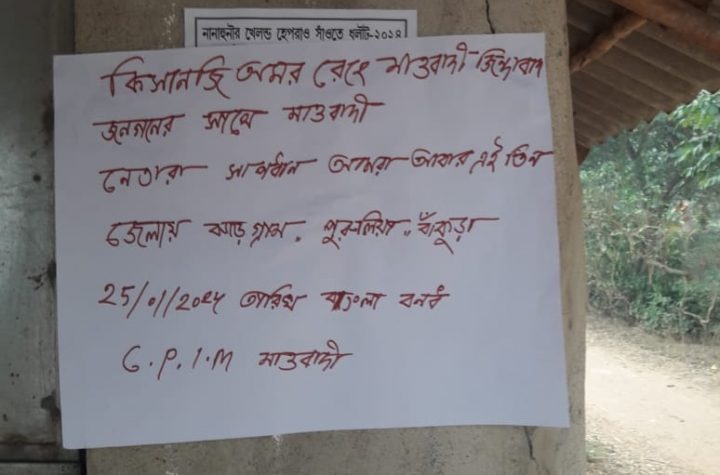 নানাহুনার খেলন্ড হেপরাও সাঁওতে ধলাট-২০২৪
কিসানজি অমর রেহে মাওবাদী জিন্দাবাদ
জনগনের সাথে মাওবাদী
নেতারা সাবধান আমরা আবার এই তিন
জেলায় ঝাড়গ্রাম. পুরুলিয়া.. বাঁকুড়া
25/01/2025 তারিখ বাংলা বনধ
C.P.I.M মাওবাদী